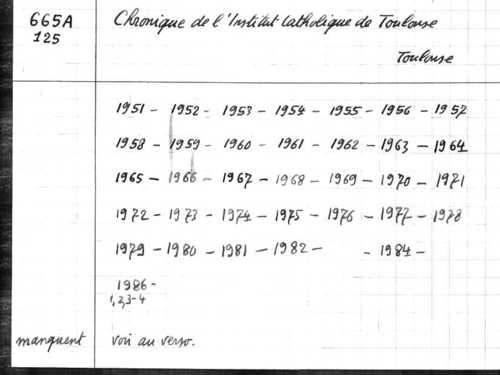 665A
125
Chronique de l'Institut Catholique de Toulouse
Toulouse
1951 - 1952 - 1953 - 1954 - 1955 - 1956 - 1957
1958 - 1959 - 1960 - 1961 - 1962 - 1963 - 1964
1965 - 1966 - 1967 - 1968 - 1969 - 1970 - 1971
1972 - 1973 - 1974 - 1975 - 1976 - 1977 - 1978
1979 - 1980 - 1981 - 1982 - - 1984 -
1986 -
1,2,3-4
manquent voir au verso.